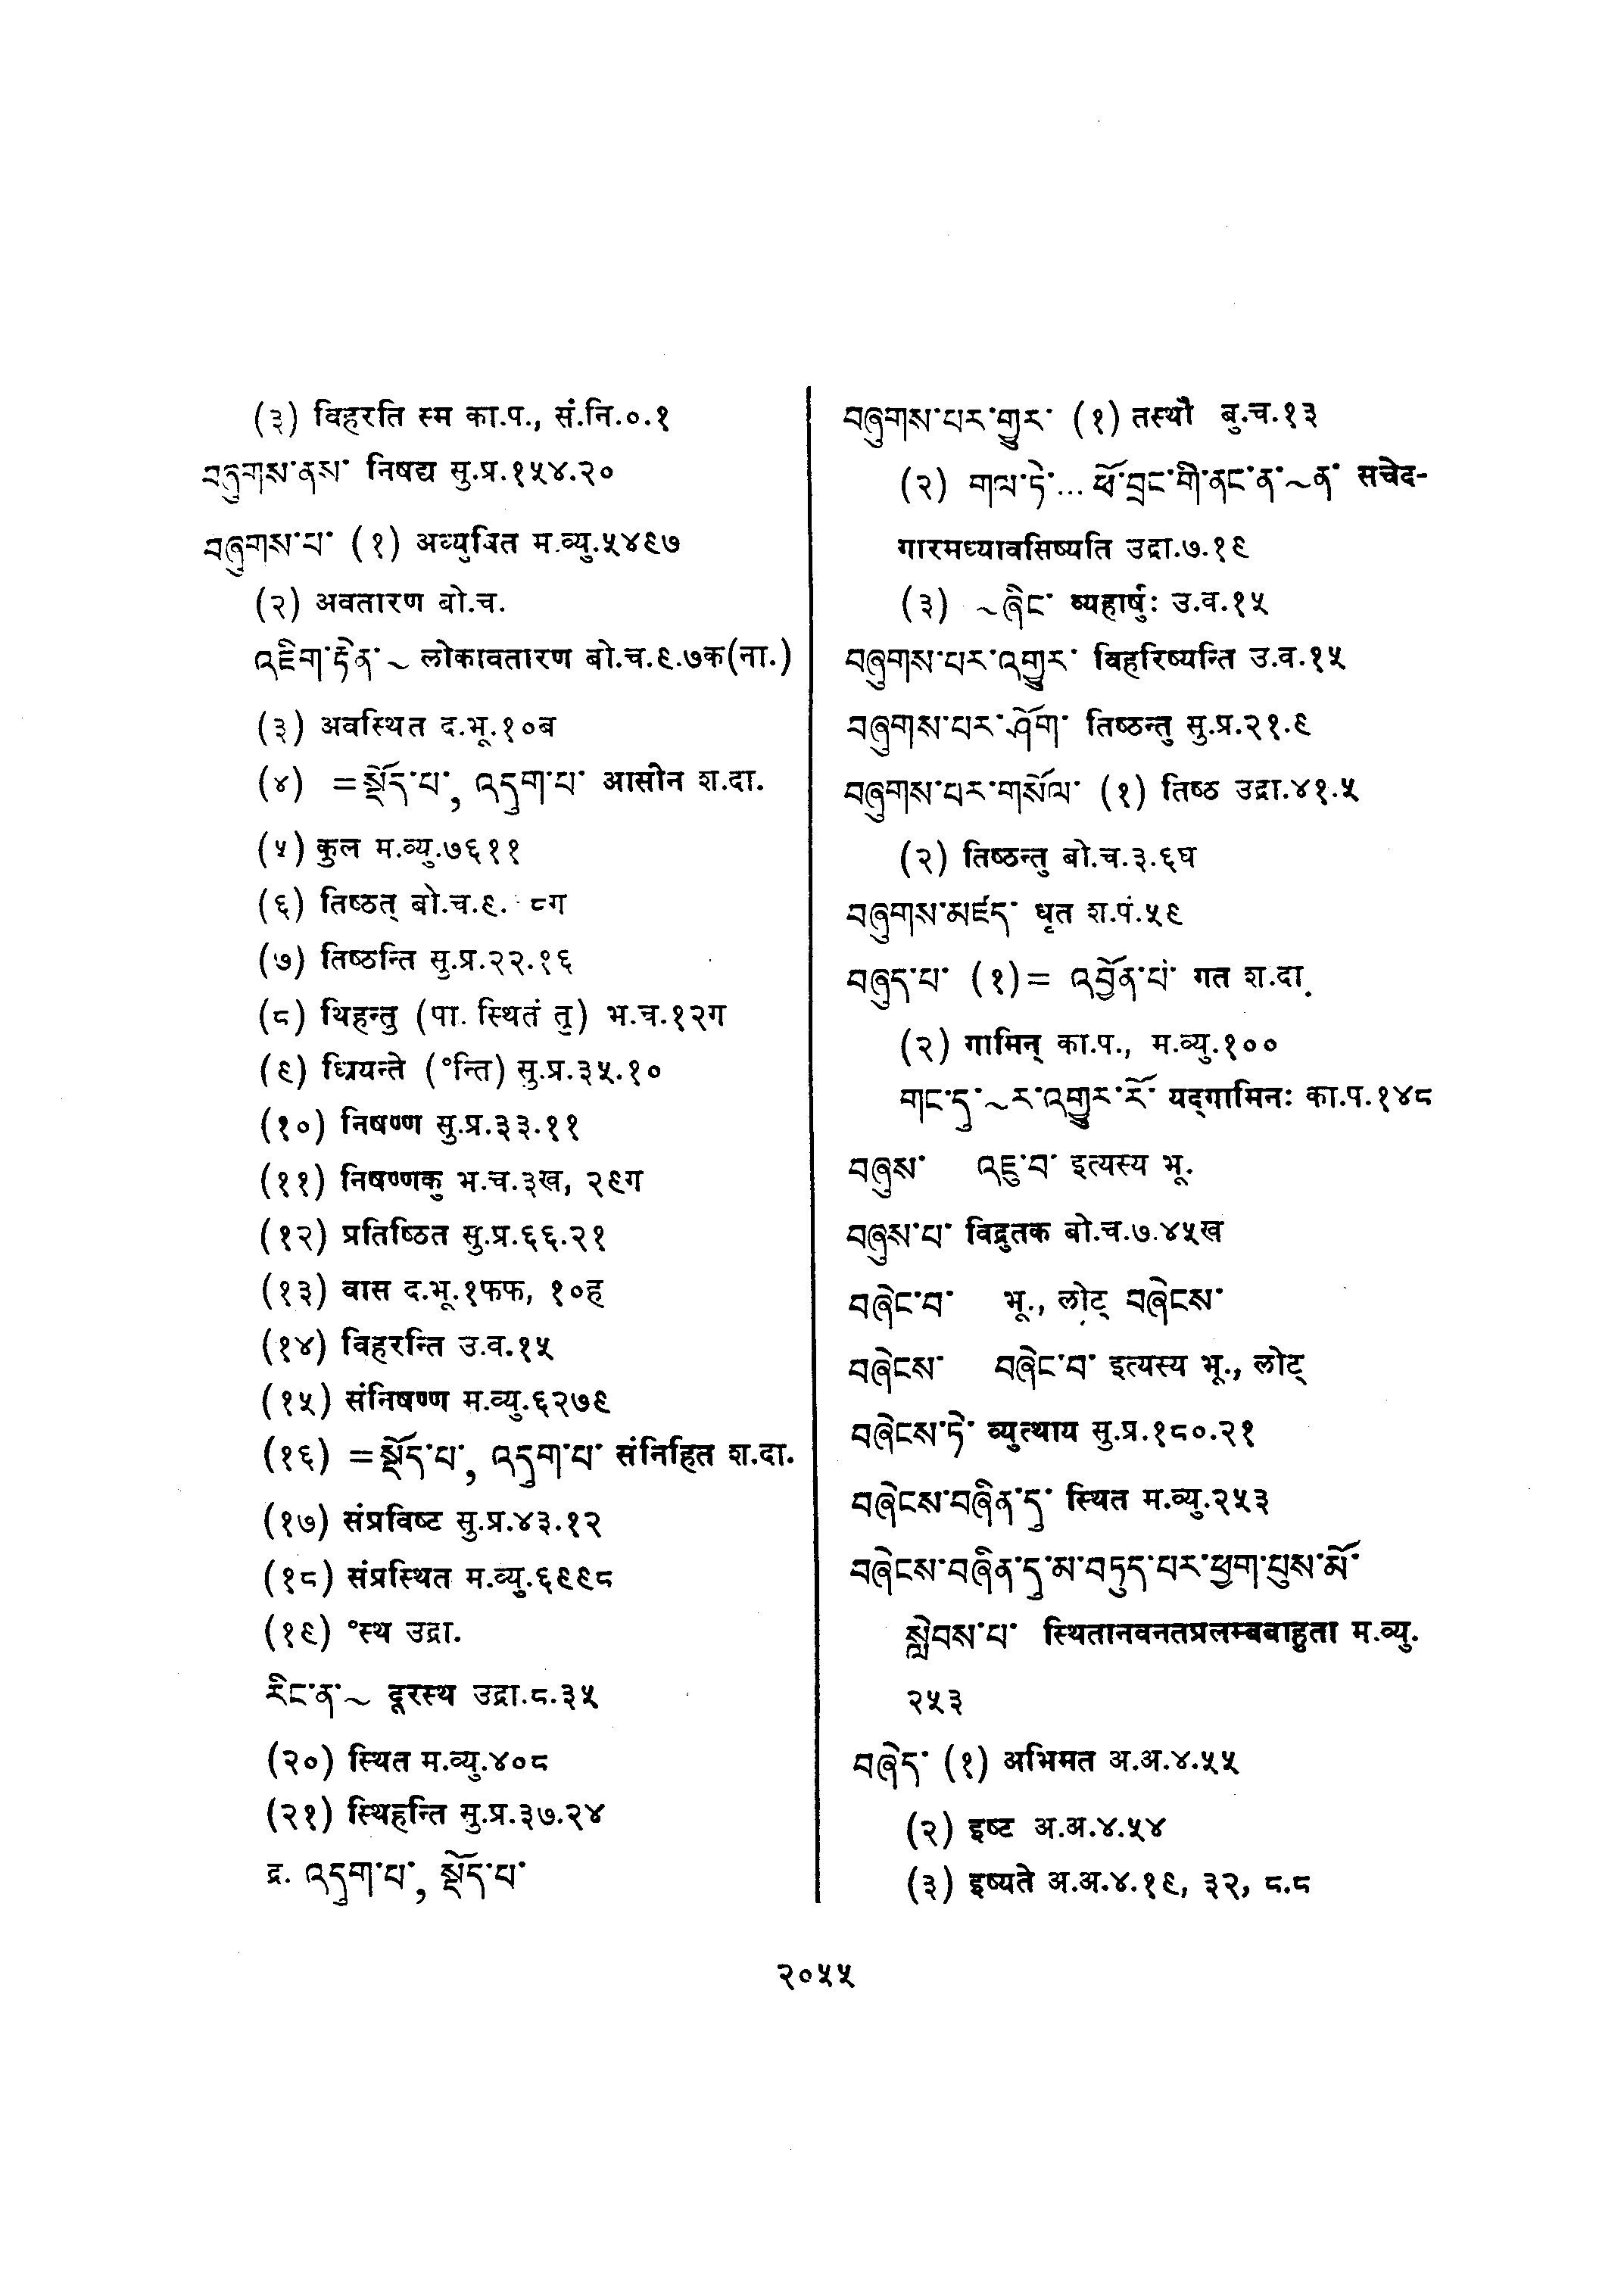 (३) विहरति स्म का.प., सं.नि.०.१
བཞུགས་ནས་ निषद्य सु.प्र.१५४.२०
བཞུགས་པ་ (१) अव्युषित म.व्यु.५४९७
(२) अवतारण बो.च.
འཇིག་རྟེན་~ लोकावतारण बो.च.९.७क(ना.)
(३) अवस्थित द.भू.१०ब
(४) =སྡོད་པ་, འདུག་པ་ आसीन श.दा.
(५) कुल म.व्यु.७६११
(६) तिष्ठत् बो.च.९. ८ग
(७) तिष्ठन्ति सु.प्र.२२.१६
(८) थिहन्तु (पा. स्थितं तु) भ.च.१२ग
(९) ध्रियन्ते (°न्ति) सु.प्र.३५.१०
(१०) निषण्ण सु.प्र.३३.११
(११) निषण्णकु भ.च.३ख, २९ग
(१२) प्रतिष्ठित सु.प्र.६६.२१
(१३) वास द.भू.१फफ, १०ह
(१४) विहरन्ति उ.व.१५
(१५) संनिषण्ण म.व्यु.६२७९
(१६) =སྡོད་པ་, འདུག་པ་ संनिहित श.दा.
(१७) संप्रविष्ट सु.प्र.४३.१२
(१८) संप्रस्थित म.व्यु.६९९८
(१९) °स्थ उद्रा.
རིང་ན་~ दूरस्थ उद्रा.८.३५
(२०) स्थित म.व्यु.४०८
(२१) स्थिहन्ति सु.प्र.३७.२४
द्र. འདུག་པ་, སྡོད་པ་
བཞུགས་པར་གྱུར་ (१) तस्थौ बु.च.१३
(२) གལ་ཏེ་... ཕོ་བྲང་གི་ནང་ན་~ན་ सचेद-
गारमध्यावसिष्यति उद्रा.७.१९
(३) ~ཞིང་ व्यहार्षुः उ.व.१५
བཞུགས་པར་འགྱུར་ विहरिष्यन्ति उ.व.१५
བཞུགས་པར་ཤོག་ तिष्ठन्तु सु.प्र.२१.९
བཞུགས་པར་གསོལ་ (१) तिष्ठ उद्रा.४१.५
(२) तिष्ठन्तु बो.च.३.६घ
བཞུགས་མཛད་ धृत श.पं.५९
བཞུད་པ་ (१)= འབྱོན་པ་ गत श.दा.
(२) गामिन् का.प., म.व्यु.१००
གང་དུ་~ར་འགྱུར་རོ་ यद्गामिनः का.प.१४८
བཞུས་ འཇུ་བ་ इत्यस्य भू.
བཞུས་པ་ विद्रुतक बो.च.७.४५ख
བཞེང་བ་ भू., लोट् བཞེངས་
བཞེངས་ བཞེང་བ་ इत्यस्य भू., लोट्
བཞེངས་ཏེ་ व्युत्थाय सु.प्र.१८०.२१
བཞེངས་བཞིན་དུ་ स्थित म.व्यु.२५३
བཞེངས་བཞིན་དུ་མ་བཏུད་པར་ཕྱག་པུས་མོ་
སླེབས་པ་ स्थितानवनतप्रलम्बबाहुता म.व्यु.
२५३
བཞེད་ (१) अभिमत अ.अ.४.५५
(२) इष्ट अ.अ.४.५४
(३) इष्यते अ.अ.४.१९, ३२, ८.८
२०५५